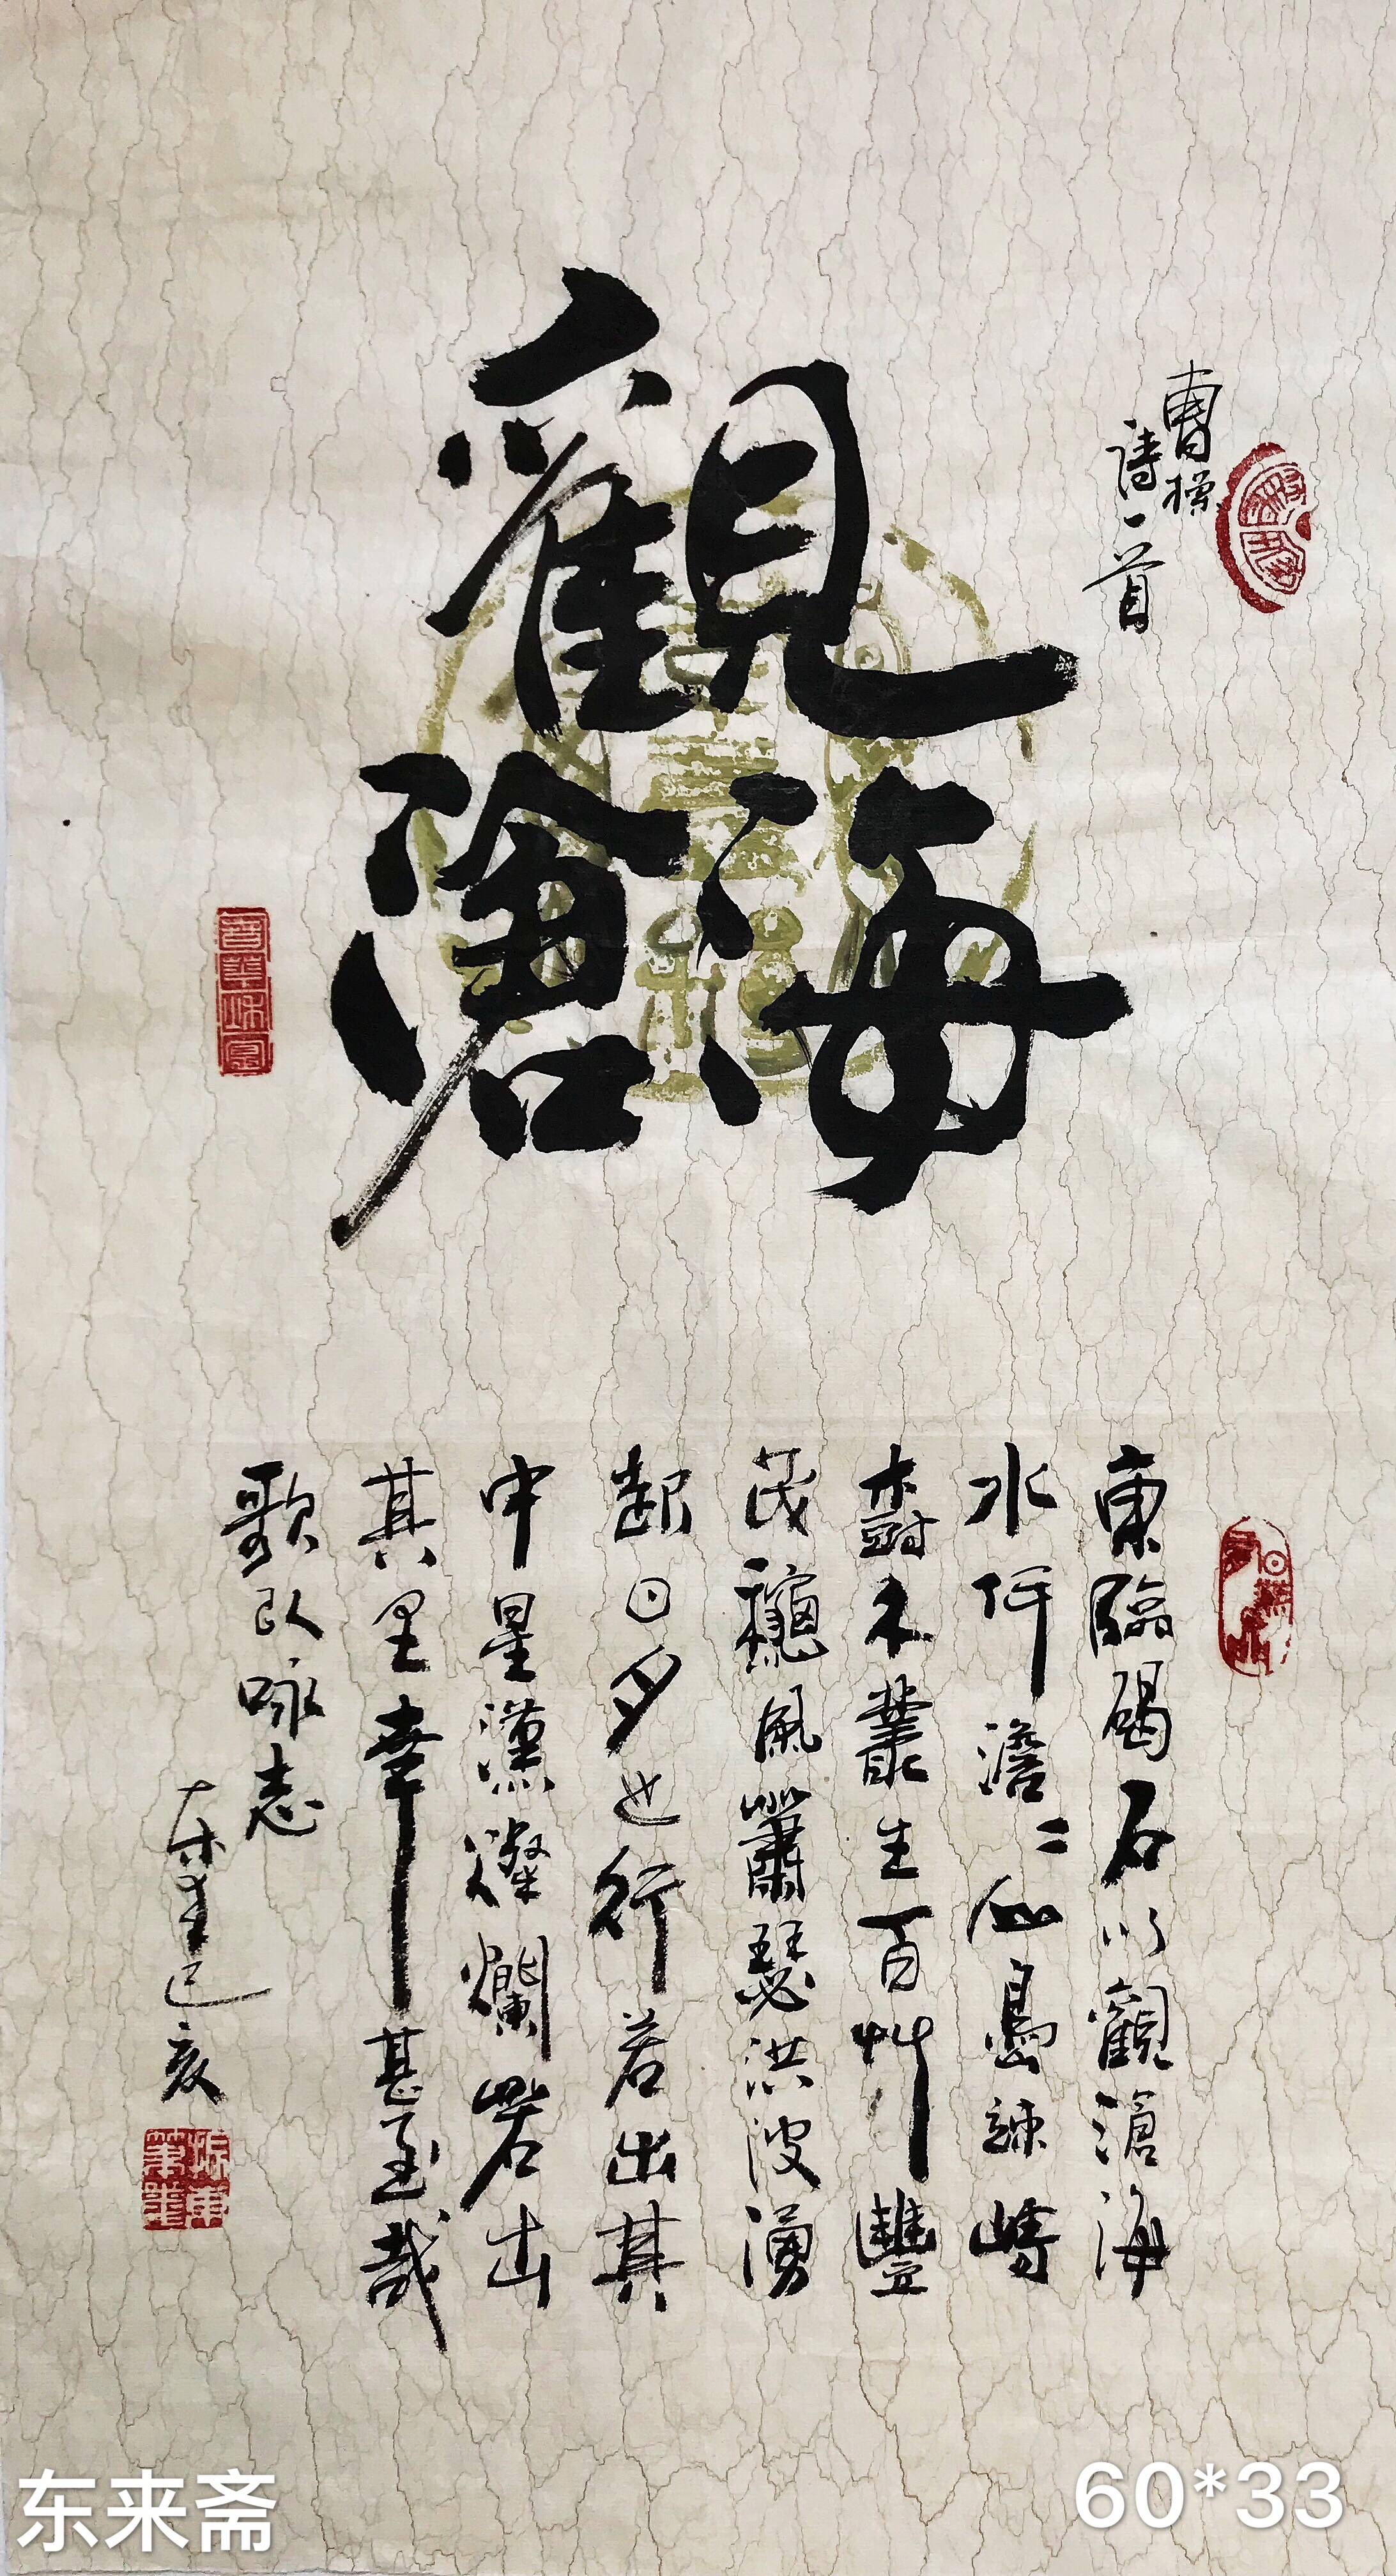 觀
滄海
曹操
詩一首
東臨碣石以觀滄海
水何澹〻山島竦峙
樹木叢生百艸豐
茂龝風蕭瑟洪波湧
起日月之行若出其
中星漢燦爛若出
其里幸甚至哉
歌以咏志
己亥
东来斋
60*33